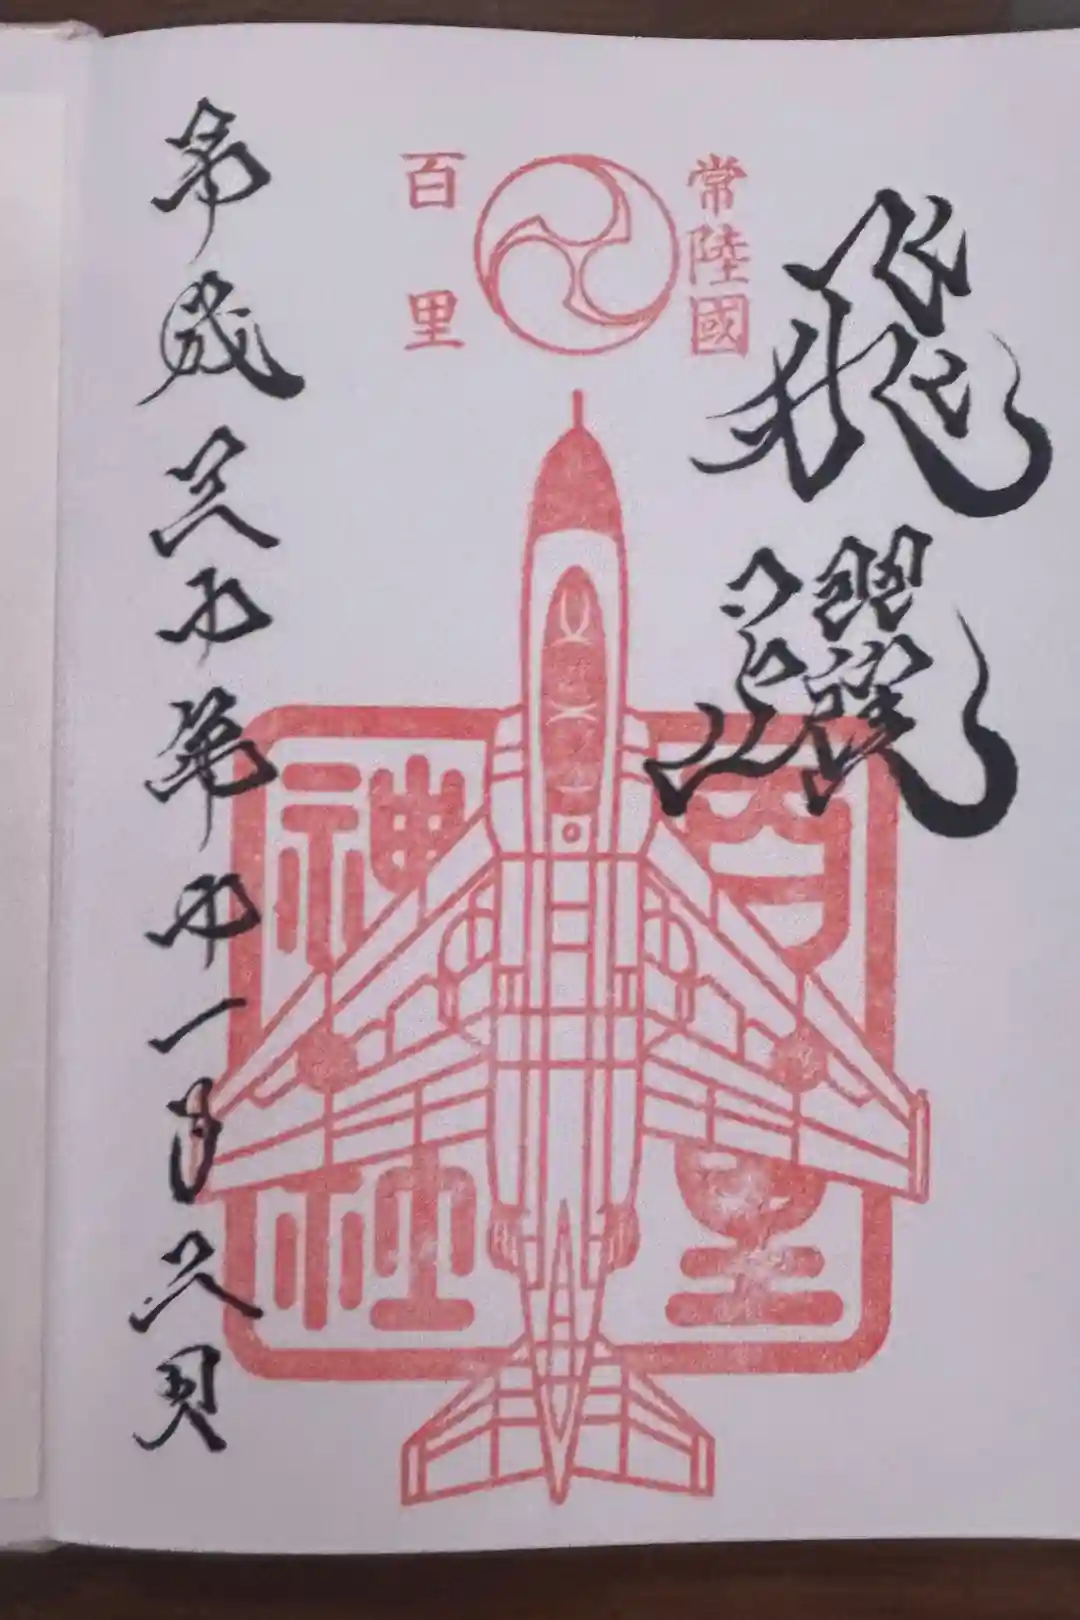 飛躍
常陸國
百里
百里
神社
平成三十年十一月三日